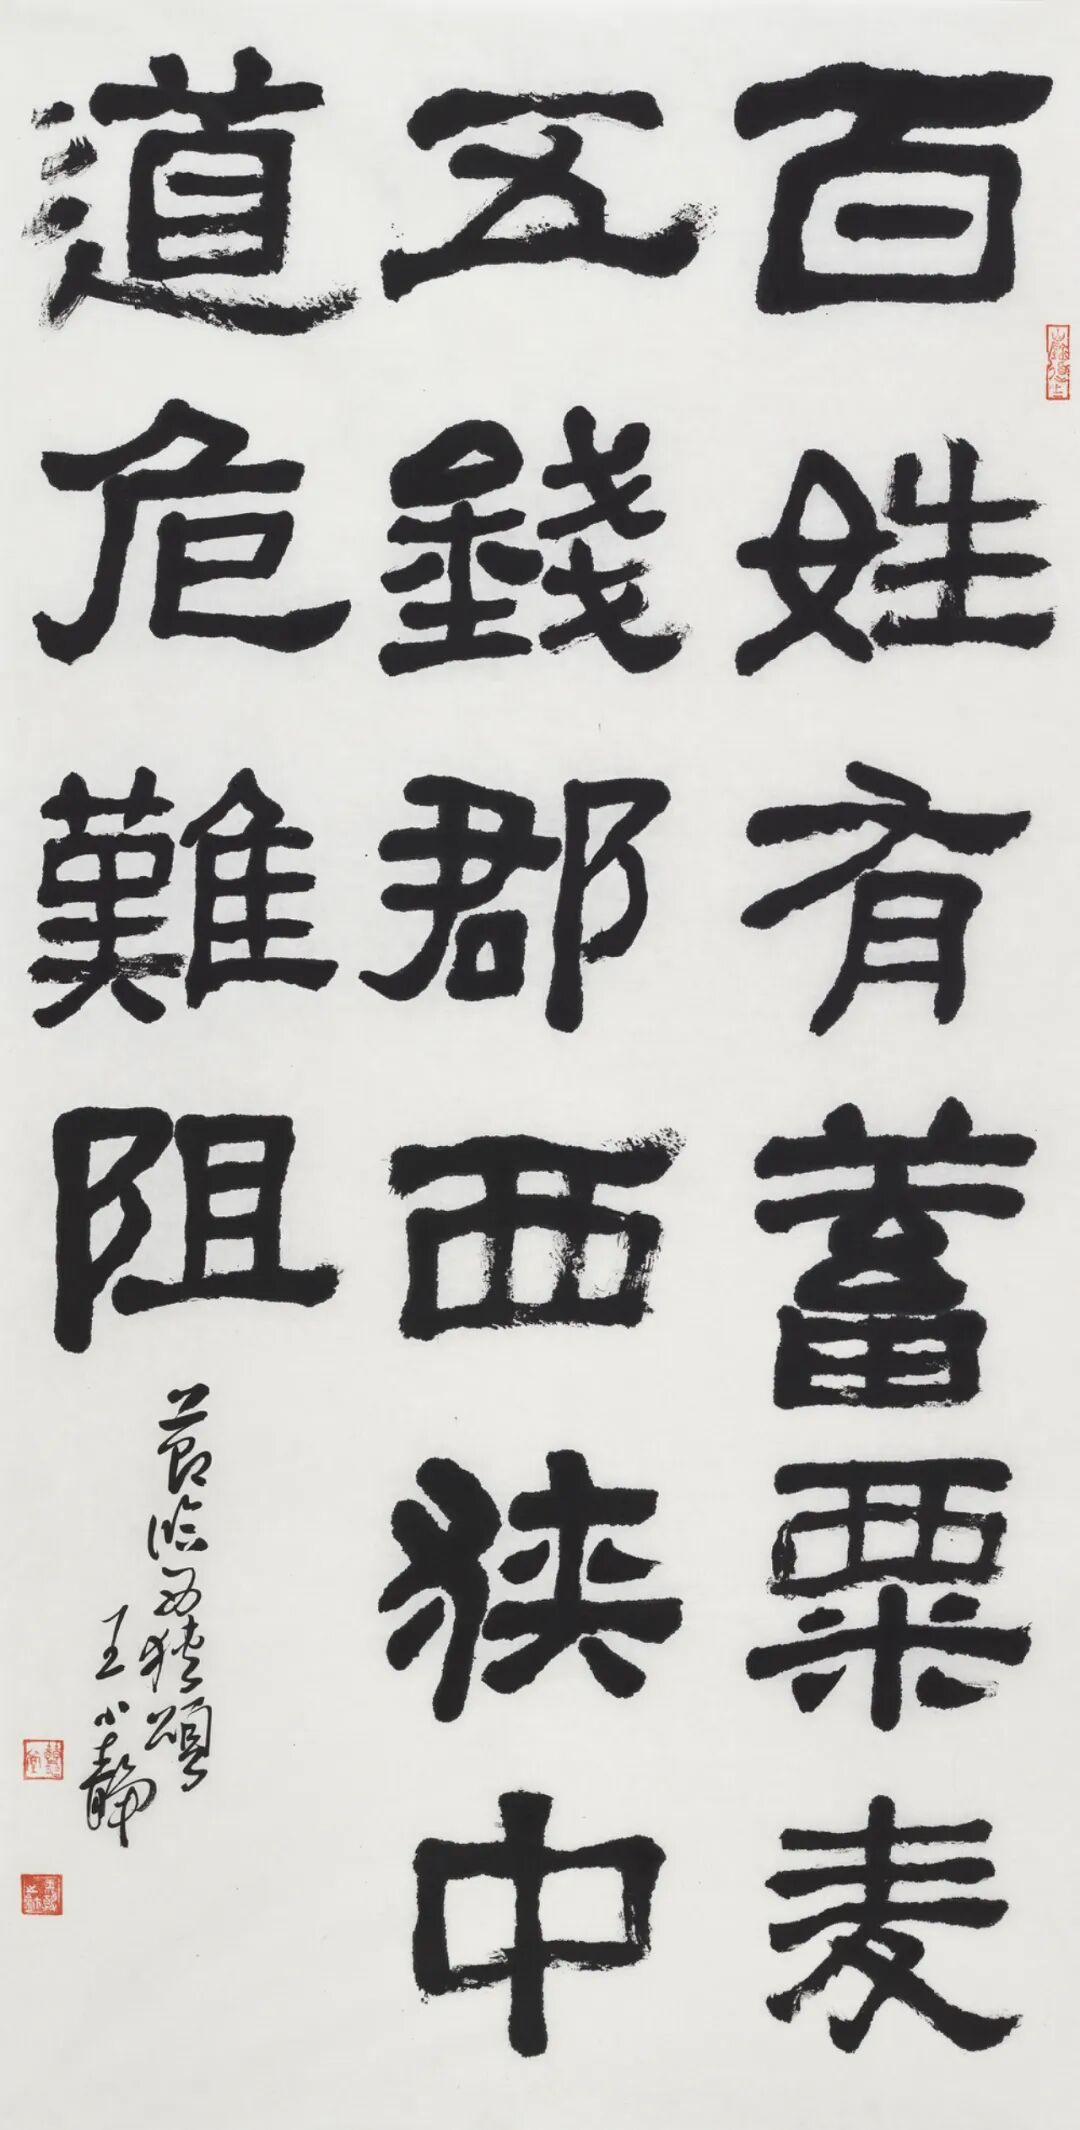 百姓有蓄粟麦
五錢郡西狭中
道危難阻
節临西狭頌
王小静